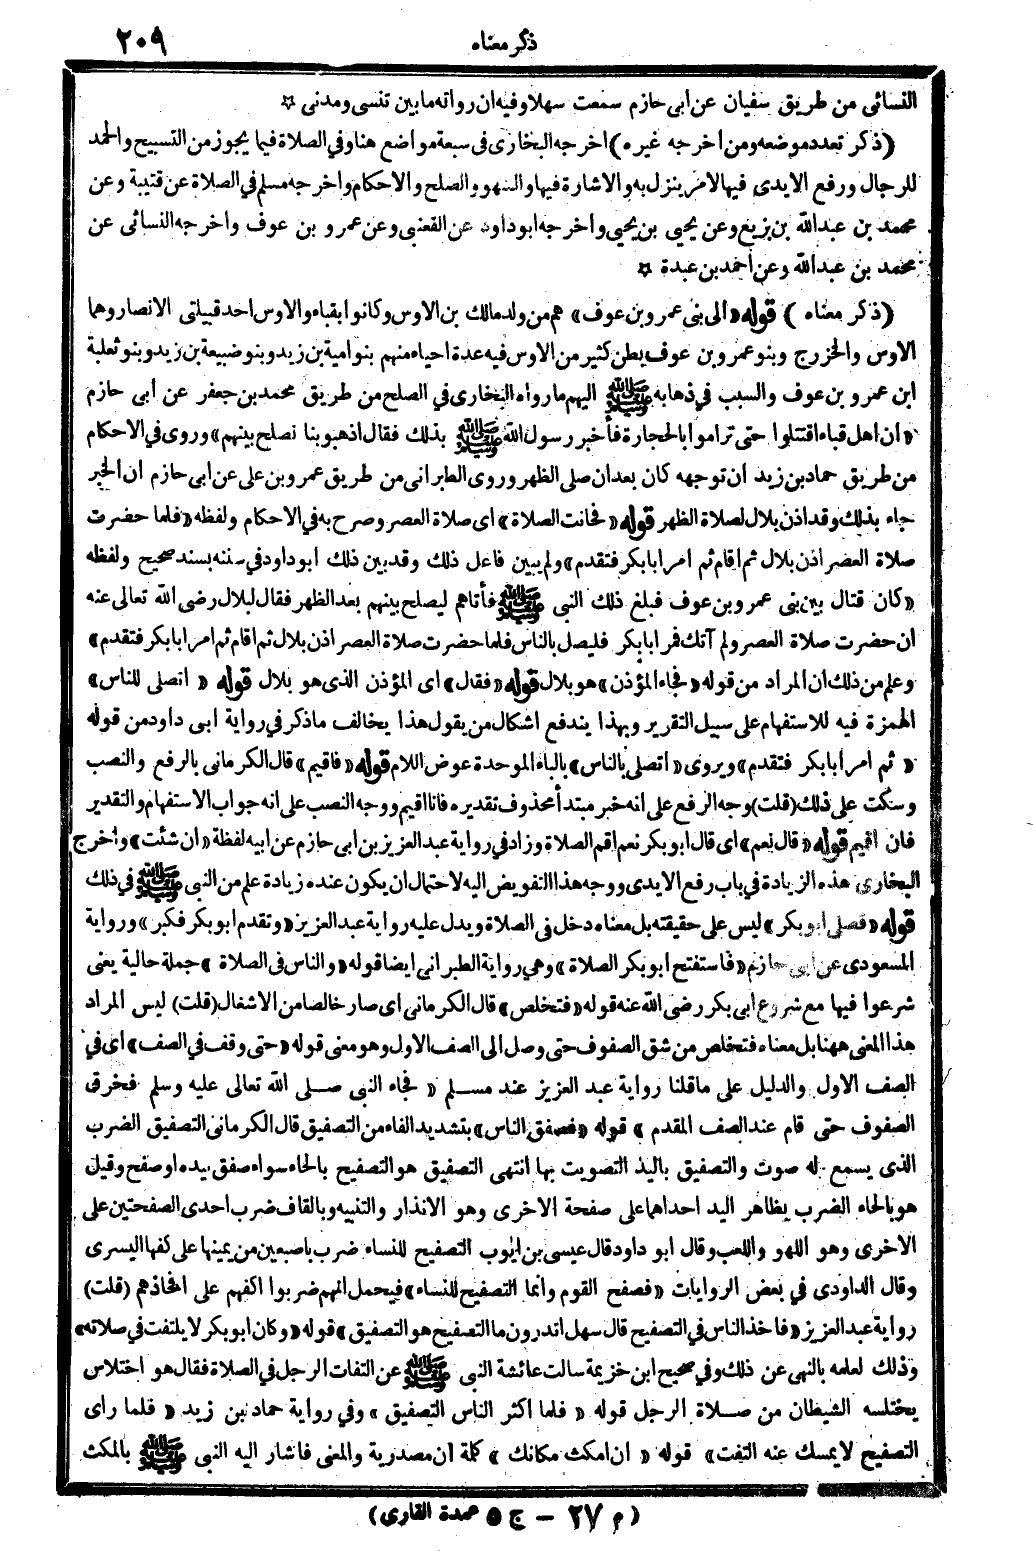 ذكر معناه
٢٠٩
النسائى من طريق سفيان عن ابى حازم سمعت سهلا وفيه ان رواته ما بين تنسى ومدنى ☆
(ذكر تعدد موضعه ومن اخرجه غيره) اخرجه البخارى فى سبعة مواضع هنا وفي الصلاة فيما يجوز من التسبيح والحمد
للرجال ورفع الايدى فيها لامر ينزل به والاشارة فيها والسهو والصلح والاحكام واخرجه مسلم في الصلاة عن قتيبة وعن
محمد بن عبدالله بن بزيع وعن يحيى بن يحيى واخرجه ابو داود عن القعنبى وعن عمرو بن عوف واخرجه النسائى عن
محمد بن عبدالله وعن أحمد بن عبدة ☆
(ذكر معناه) قوله «الى بنى عمرو بن عوف» هم من ولد مالك بن الاوس وكانوا بقباء والاوس احد قبيلتى الانصار وهما
الاوس والخزرج وبنو عمرو بن عوف بطن كثير من الاوس فيه عدة احياء منهم بنو امية بن زيد وبنو ضبيعة بن زيد وبنو ثعلبة
ابن عمرو بن عوف والسبب في ذهابه ﷺ اليهم ما رواه البخارى في الصلح من طريق محمد بن جعفر عن أبى حازم
«ان اهل قباء اقتتلوا حتى تراموا بالحجارة فأخبر رسول الله ﷺ بذلك فقال اذهبوا بنا نصلح بينهم» وروى في الاحكام
من طريق حماد بن زيد ان توجهه كان بعد ان صلى الظهر وروى الطبرانى من طريق عمرو بن على عن ابى حازم ان الخبر
جاء بذلك وقد اذن بلال لصلاة الظهر قوله «فحانت الصلاة» اى صلاة العصر وصرح به في الاحكام ولفظه «فلما حضرت
صلاة العصر اذن بلال ثم اقام ثم امر ابا بكر فتقدم» ولم يبين فاعل ذلك وقد بين ذلك ابو داود في سننه بسند صحيح ولفظه
«كان قتال بين بنى عمرو بن عوف فبلغ ذلك النبى ﷺ فأتاهم ليصلح بينهم بعد الظهر فقال لبلال رضى الله تعالى عنه
ان حضرت صلاة العصر ولم آتك فمر ابا بكر فليصل بالناس فلما حضرت صلاة العصر اذن بلال ثم اقام ثم امر ابا بكر فتقدم»
وعلم من ذلك ان المراد من قوله «فجاء المؤذن» هو بلال قوله «فقال» اى المؤذن الذى هو بلال قوله «اتصلى للناس»
الهمزة فيه للاستفهام على سبيل التقرير وبهذا يندفع اشكال من يقول هذا يخالف ما ذكر في رواية ابى داود من قوله
«ثم امر أبا بكر فتقدم» ويروى «اتصلى بالناس» بالباء الموحدة عوض اللام قوله «فاقيم» قال الكرمانى بالرفع والنصب
وسكت على ذلك (قلت) وجه الرفع على انه خبر مبتدأ محذوف تقديره فانا اقيم ووجه النصب على انه جواب الاستفهام والتقدير
فان اقيم قوله «قال نعم» اى قال ابو بكر نعم اقم الصلاة وزاد في رواية عبد العزيز بن ابى حازم عن ابيه لفظة «ان شئت» واخرج
البخارى هذه الزيادة في باب رفع الايدى ووجه هذا التفويض اليه لاحتمال ان يكون عنده زيادة علم من النبى ﷺ في ذلك
قوله «فصلى ابو بكر» ليس على حقيقته بل معناه دخل فى الصلاة ويدل عليه رواية عبد العزيز «وتقدم ابو بكر فكبر» ورواية
المسعودى عن ابى حازم «فاستفتح ابو بكر الصلاة» وهي رواية الطبرانى ايضا قوله «والناس فى الصلاة» جملة حالية يعنى
شرعوا فيها مع شروع ابى بكر رضى الله عنه قوله «فتخلص» قال الكرمانى اى صار خالصا من الاشغال (قلت) ليس المراد
هذا المعنى ههنا بل معناه فتخلص من شق الصفوف حتى وصل الى الصف الاول وهو معنى قوله «حتى وقف في الصف» اى في
الصف الاول والدليل على ما قلنا رواية عبد العزيز عند مسلم «فجاء النبى صلى الله تعالى عليه وسلم فخرق
الصفوف حتى قام عند الصف المقدم» قوله «فصفق الناس» بتشديد الفاء من التصفيق قال الكرمانى التصفيق الضرب
الذى يسمع له صوت والتصفيق باليد التصويت بها انتهى التصفيق هو التصفيح بالحاء سواء صفق بيده او صفح وقيل
هو بالحاء الضرب بظاهر اليد احداهما على صفحة الاخرى وهو الانذار والتنبيه وبالقاف ضرب احدى الصفحتين على
الاخرى وهو اللهو واللعب وقال ابو داود قال عيسى بن ايوب التصفيح للنساء ضرب باصبعين من يمينها على كفها اليسرى
وقال الداودى في بعض الروايات «فصفح القوم وانما التصفيح للنساء» فيحمل انهم ضربوا اكفهم على افخاذهم (قلت)
رواية عبد العزيز «فاخذ الناس في التصفيح قال سهل اتدرون ما التصفيح هو التصفيق» قوله «وكان ابو بكر لا يلتفت في صلاته»
وذلك لعلمه بالنهى عن ذلك وفي صحيح ابن خزيمة سالت عائشة النبى ﷺ عن التفات الرجل في الصلاة فقال هو اختلاس
يختلسه الشيطان من صلاة الرجل قوله «فلما اكثر الناس التصفيق» وفي رواية حماد بن زيد «فلما راى
التصفيح لا يمسك عنه التفت» قوله «ان امكث مكانك» كلمة ان مصدرية والمعنى فاشار اليه النبى ﷺ بالمكث
(م ٢٧ - ج ٥ عمدة القارى)